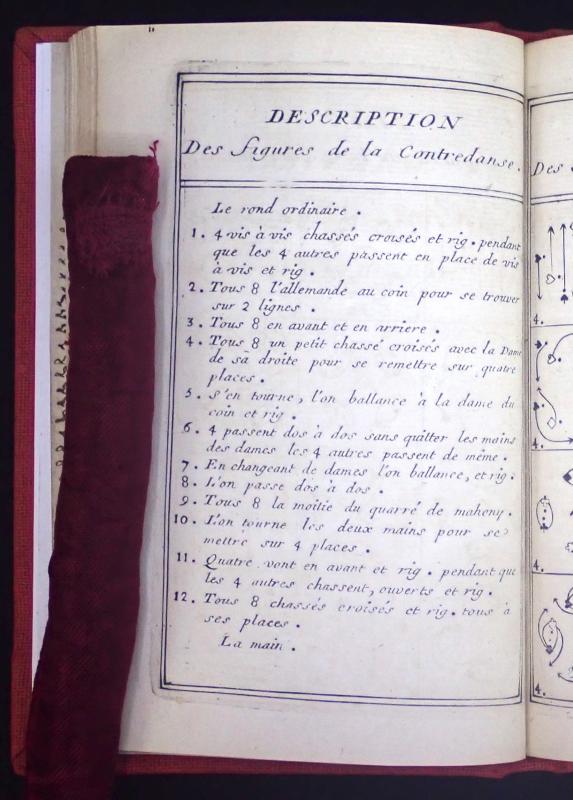 DESCRIPTION
Des figures de la Contredanse.
Le rond ordinaire.
1. 4 vis à vis chassés croisés et rig. pendant
que les 4 autres passent en place de vis
à vis et rig.
2. Tous 8 l'allemande au coin pour se trouver
sur 2 lignes.
3. Tous 8 en avant et en arriere.
4. Tous 8 un petit chassé croisés avec la Dame
de sà droite pour se remettre sur quatre
places.
5. s'en tourne, l'on ballance à la dame du
coin et rig.
6. 4 passent dos à dos sans quitter les mains
des dames les 4 autres passent de même.
7. En changeant de dames l'on ballance, et rig.
8. L'on passe dos à dos.
9. Tous 8 la moitie du quarré de maheny.
10. L'on tourne les deux mains pour se
mettre sur 4 places.
11. Quatre vont en avant et rig. pendant que
les 4 autres chassent, ouverts et rig.
12. Tous 8 chassés croisés et rig. tous à
ses places.
La main.
Des
4.
4.
4.
4.